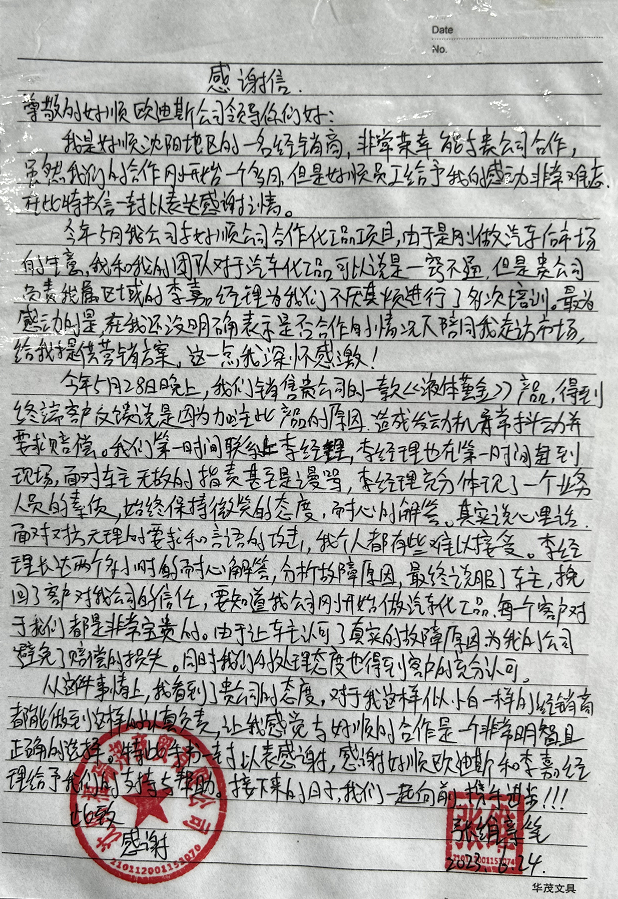 Date
No.
感谢信
尊敬的好顺欧迪斯公司领导你们好：
我是好顺沈阳地区的一名经销商，非常荣幸能与贵公司合作，
虽然我们的合作刚开始一个多月，但是好顺员工给予我的感动非常难忘
在此特书信一封以表达感谢之情。
今年5月我公司与好顺公司合作化工品项目，由于是刚做汽车后市场
的生意，我和我的团队对于汽车化工品可以说是一窍不通，但是贵公司
负责我属区域的李嘉经理为我们不厌其烦进行了多次培训。最为
感动的是，在我还没明确表示是否合作的情况下陪同我走访市场，
给我提供营销方案，这一点我深怀感激！
今年5月28日晚上，我们销售贵公司的一款《液体黄金》产品，得到
终端客户反馈说是因为加注此产品的原因，造成发动机异常抖动并
要求赔偿。我们第一时间联系上李经理，李经理也在第一时间赶到
现场，面对车主无故的指责甚至是谩骂，李经理充分体现了一个业务
人员的素质，始终保持微笑的态度，耐心的解答。真实说心里话，
面对对方无理的要求和言语的攻击，我个人都有些难以接受。李经
理长达两个多小时的耐心解答，分析故障原因，最终说服了车主，挽
回了客户对我公司的信任，要知道我公司刚开始做汽车化工品，每个客户对
于我们都是非常宝贵的。由于让车主认可了真实的故障原因为我的公司
避免了赔偿的损失。同时我们的处理态度也得到客户的充分认可。
从这件事情上，我看到了贵公司的态度，对于我这样似小白一样的经销商
都能做到这样的认真负责，让我感觉与好顺的合作是一个非常明智且
正确的选择。特此书信一封以表感谢，感谢好顺欧迪斯和李嘉经
理给予我们的支持与帮助。接下来的日子，我们一起向前，携手进步！！！
此致
感谢
2023.6.24.
210112001151070
210112001151074
华茂文具